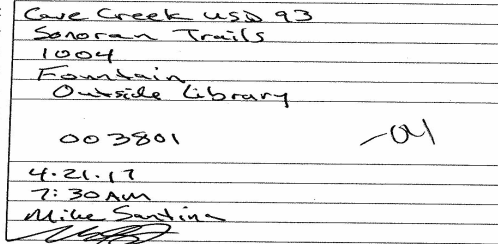 Cave Creek USD 93
Sonoran Trails
1004
Fountain
Outside Library
003801 -04
4.21.17
7:30 AM
Mike Santina